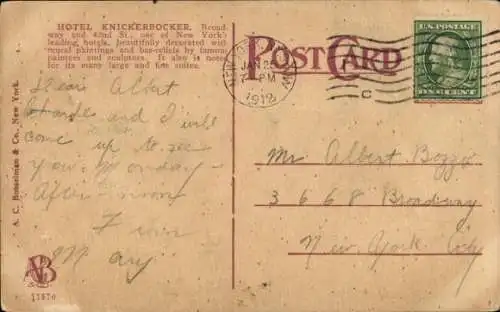 HOTEL KNICKERBOCKER, Broad-
way and 42nd St., one of New York's
leading hotels, beautifully decorated with
mural paintings and bas-reliefs by famous
painters and sculptors. It also is noted
for its many large and fine suites.
POST CARD
NEW YORK, N.Y.
JAN 26
7 PM
1912
C
U.S. POSTAGE
ONE CENT
Dear Albert
and I will
come up to see
you Monday -
After - noon
From
Mary
Mr Albert Bozzo
3668 Broadway
New York City
A. C. Bosselman & Co., New York.
11870